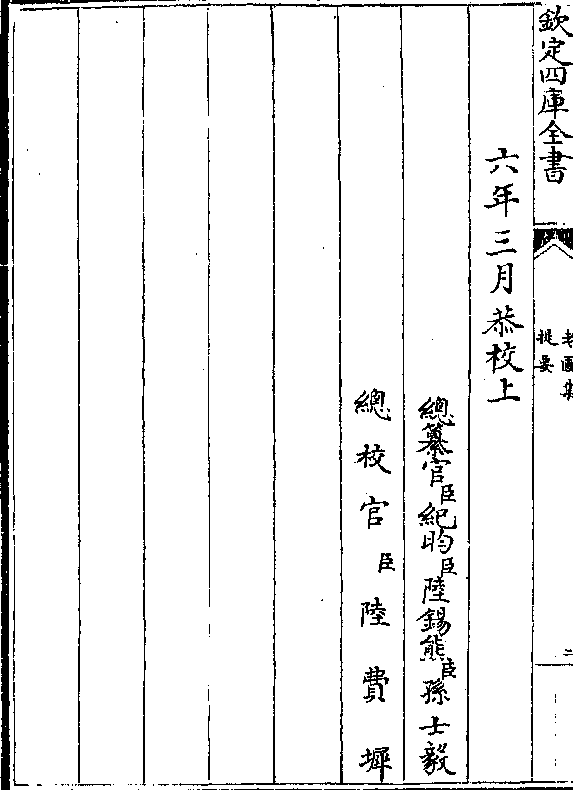 欽定四庫全書
老圃集
提要
二
六年三月恭校上
總纂官臣紀昀臣陸錫熊臣孫士毅
總校官臣陸費墀